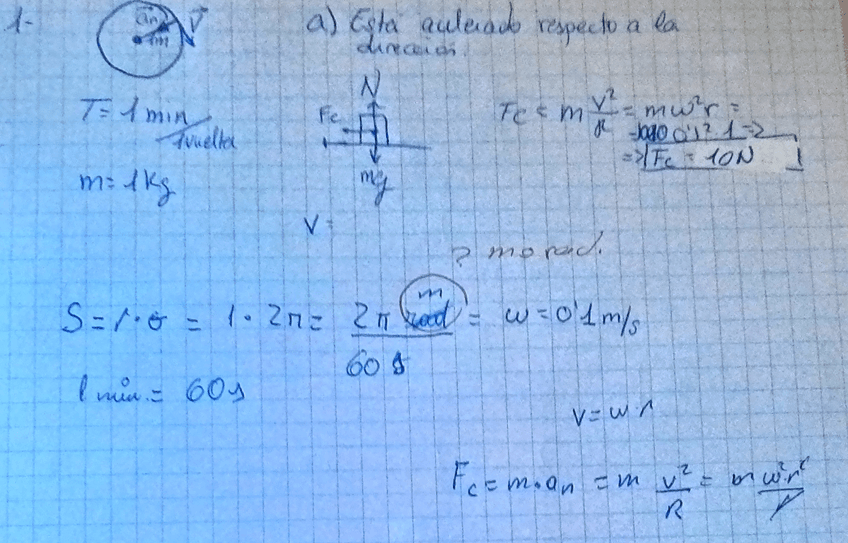 1-
an
1m
V
a) Está acelerado respecto a la
dirección.
T = 1 min/1vuelta
m = 1 kg
N
Fc
mg
Fc = m v²/R = mω²r =
0'1² 1 =>
=> Fc = 10N
V =
? m o rad.
S = r · σ = 1 · 2π = 2π m / 60 s = ω = 0'1 m/s
1 min. = 60 s
v = ω r
Fc = m · an = m v²/R = m ω²r²/r